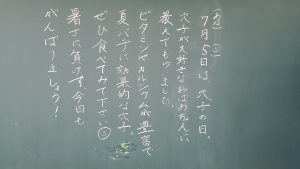 7月5日は、穴子の日。
穴子が大好きなおばあたんに
教えてもらいました。
ビタミンやカルシウムが豊富で
夏バテに効果的な穴子。
ぜひ食べてみて下さい
暑さに負けず、今日も
がんばりましょう！